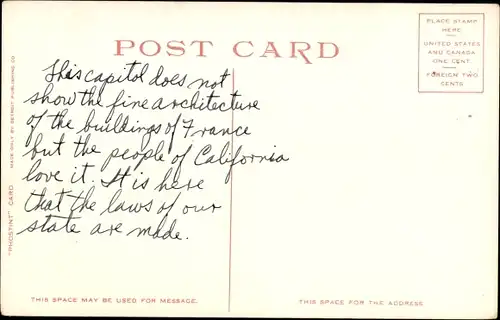 POST CARD
PLACE STAMP
HERE
UNITED STATES
AND CANADA
ONE CENT
FOREIGN TWO
CENTS
This capitol does not
show the fine architecture
of the buildings of France
but the people of California
love it. It is here
that the laws of our
state are made.
"PHOSTINT" CARD
MADE ONLY BY DETROIT PUBLISHING CO.
THIS SPACE MAY BE USED FOR MESSAGE.
THIS SPACE FOR THE ADDRESS